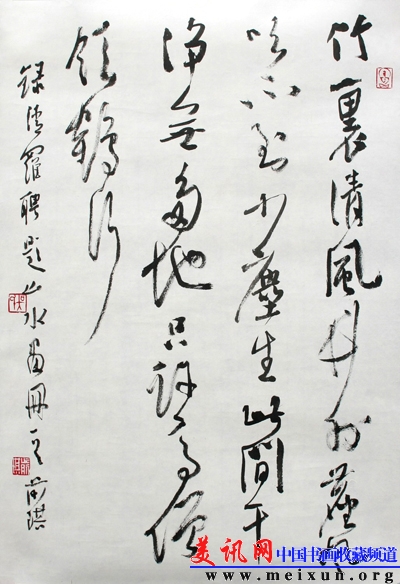 竹裏清風竹外塵風
吹不到少塵生此間干
净無多地只許高僧
領鶴行
錄清羅聘題山水畫冊一
美讯网 中国书画收藏频道
www.meixun.org